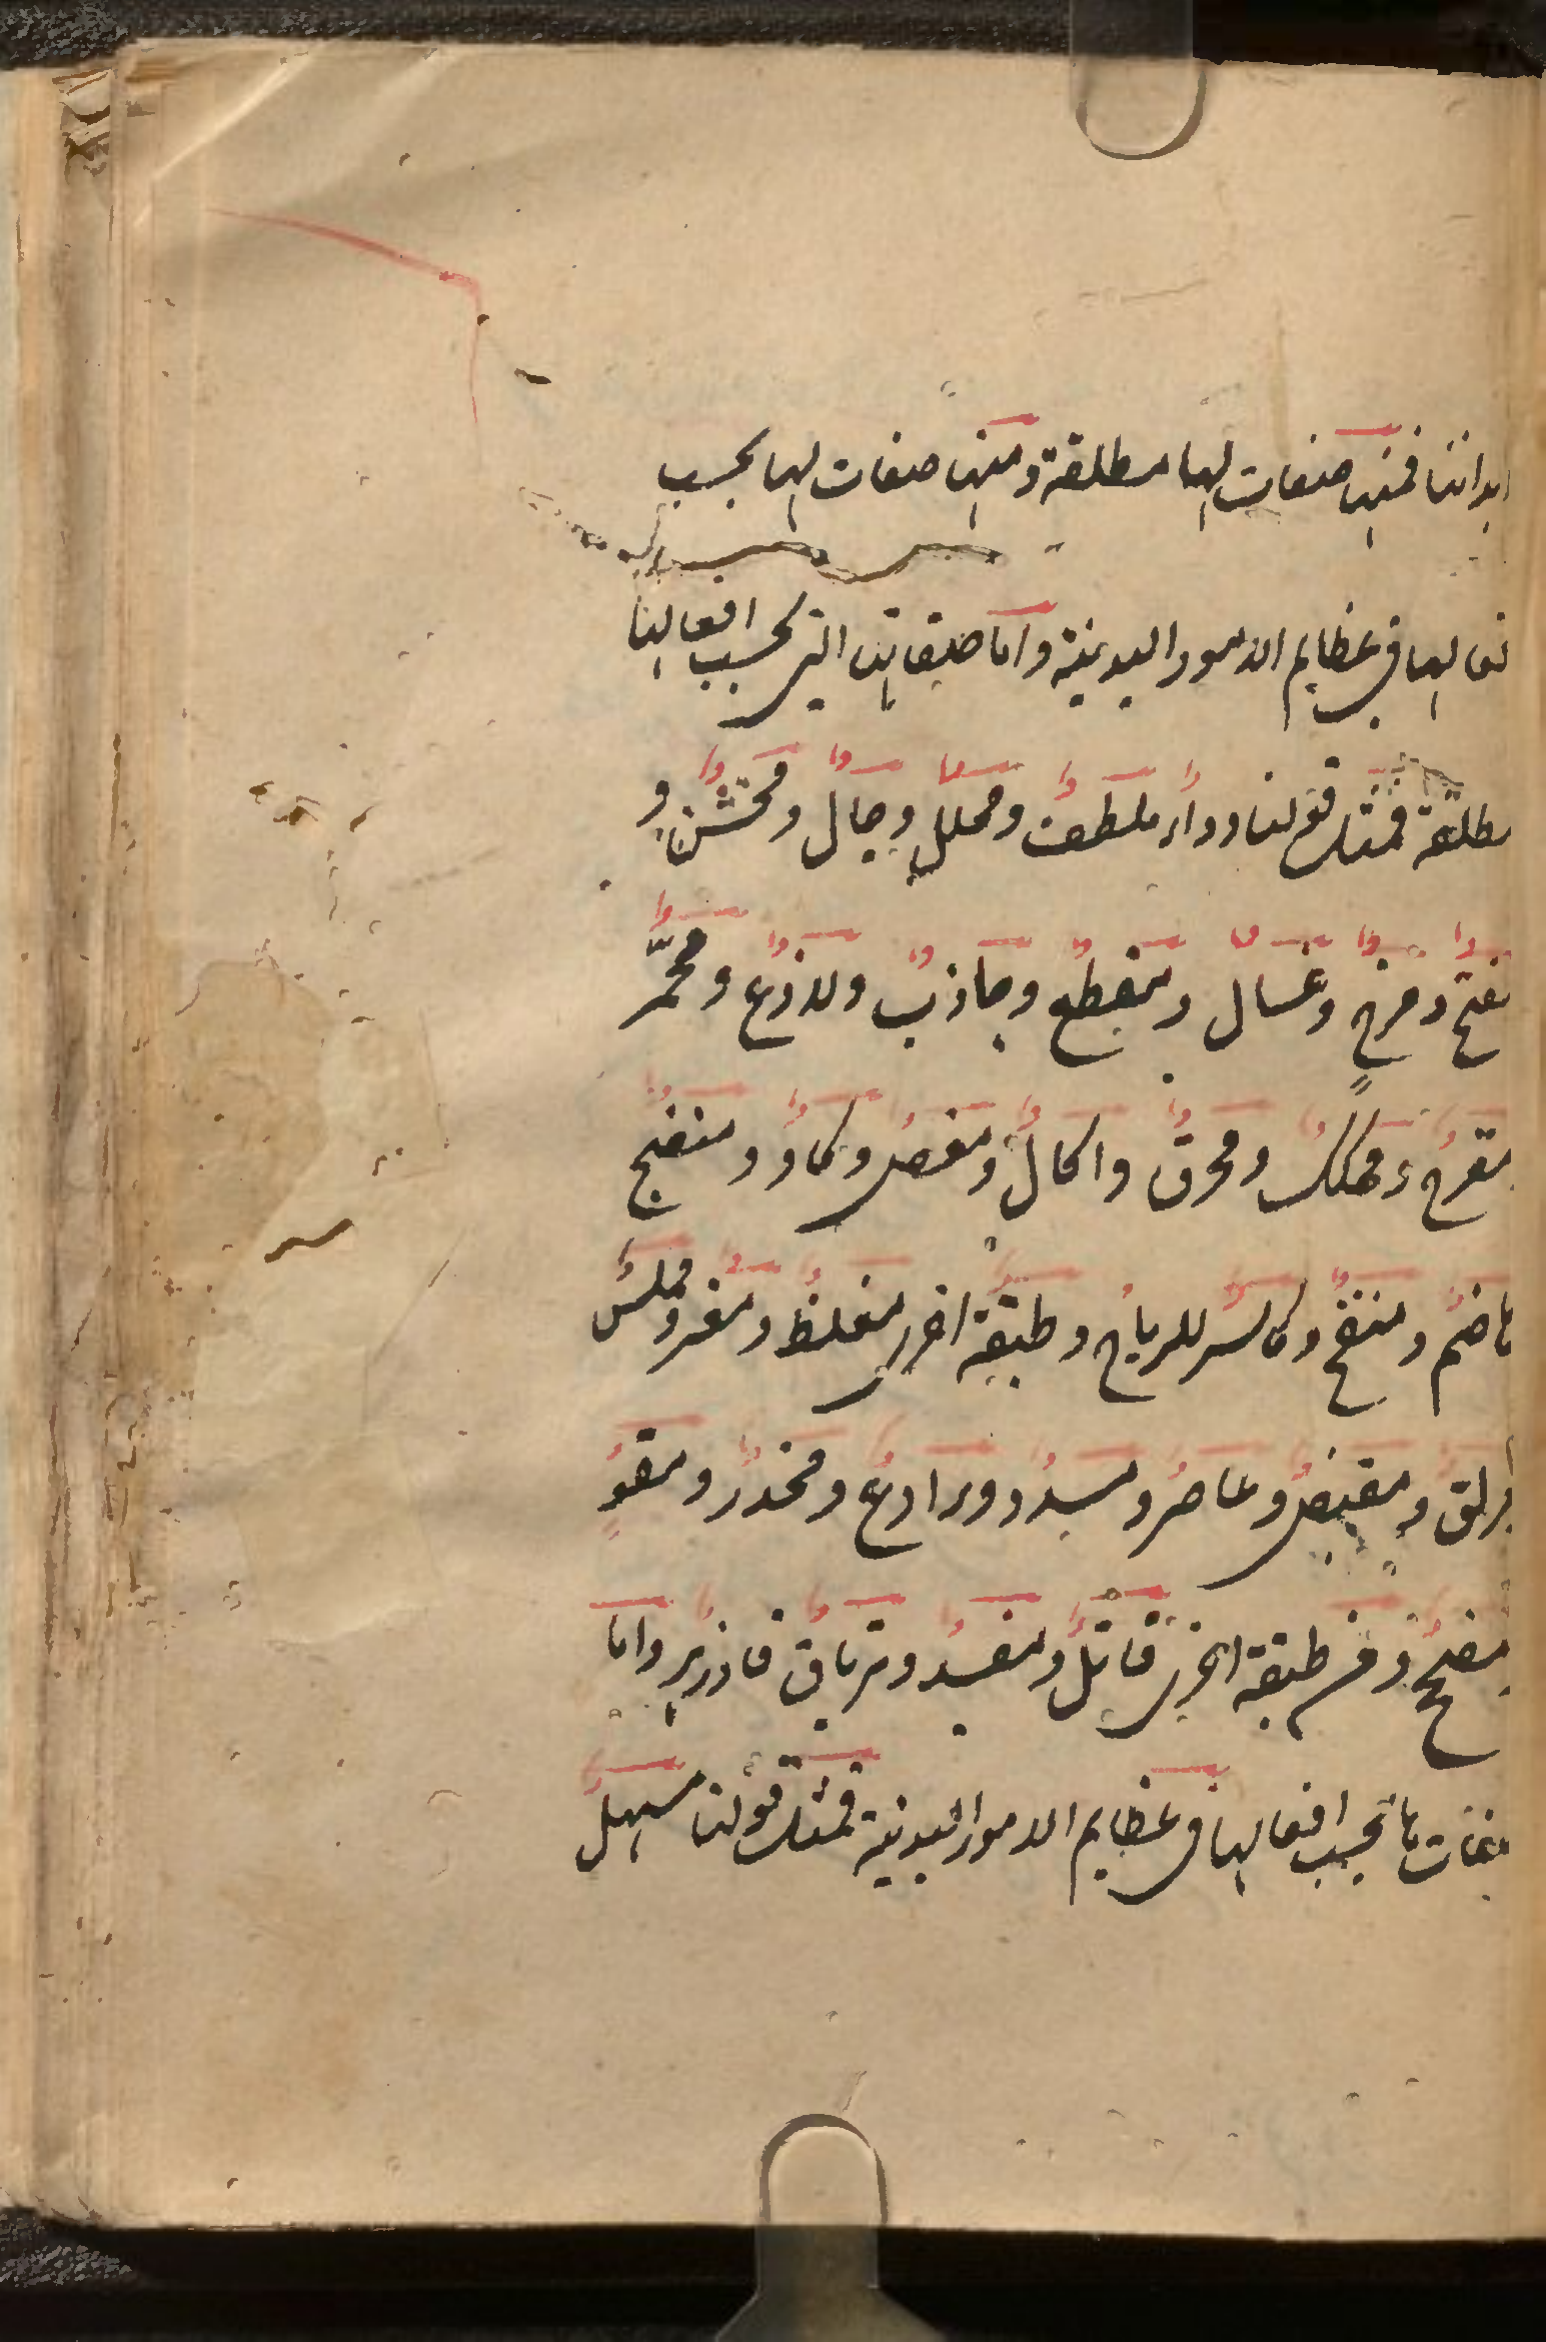 ابداننا فمنها صفات لها مطلقة ومنها صفات لها بحسب
افعالها فى عظايم الامور البدنية واما صفاتها التى بحسب افعالها
مطلقة فمثل قولنا دواء ملطف ومحلل وجال ومخشن و
مفتح ومرخ وغسال ومقطع وجاذب ولاذع ومحمر
مقرح ومحكك ومحرق واكال ومعفن وكاو ومنضج
هاضم ومنفخ وكاسر للرياح وطبقة اخرى مغلظ ومغر ومملس
مزلق ومقبض وعاصر ومسدد ورادع ومخدر ومقو
مفجح ومن طبقة اخرى قاتل ومفسد وترياق فاذزهر واما
صفاتها بحسب افعالها فى عظايم الامور البدنية فمثل قولنا مسهل